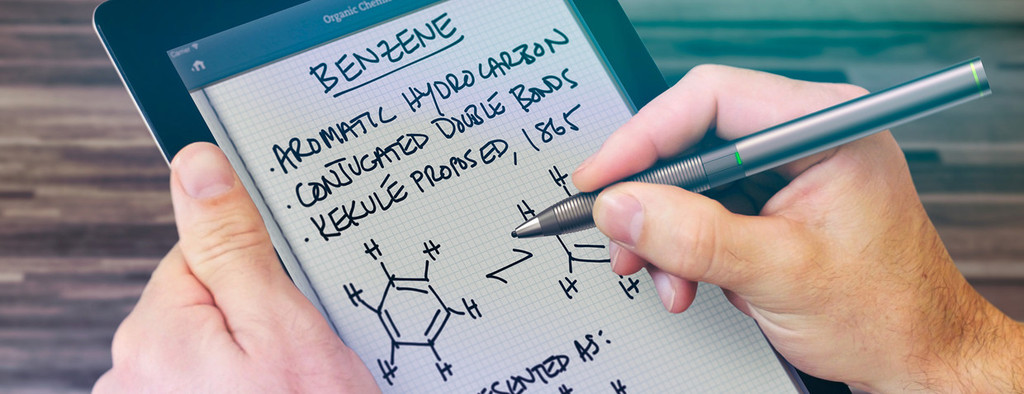 Organic Chemi
BENZENE
· AROMATIC HYDROCARBON
· CONJUGATED DOUBLE BONDS
· KEKULÉ PROPOSED, 1865
H
H H
H H
H H
H H
H H
ESENTED AS:
H H